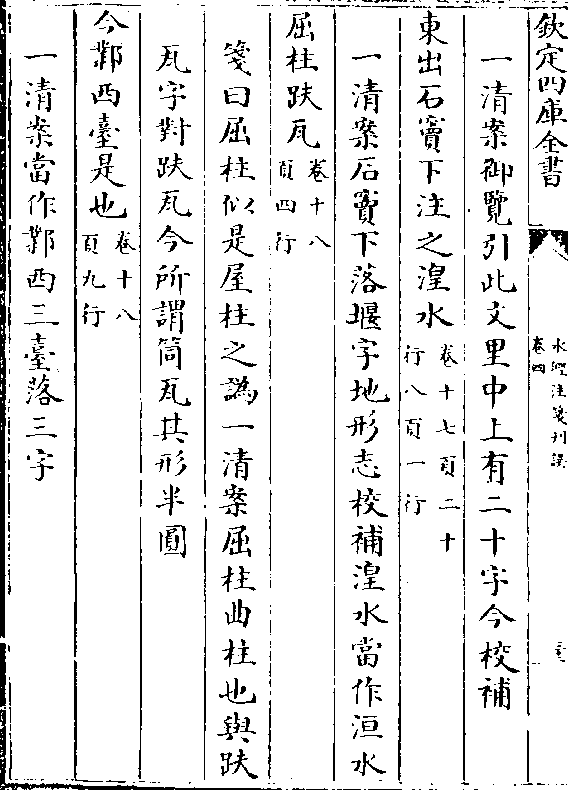 欽定四庫全書
水經注箋刊誤
卷四
一清案御覽引此文里中上有二十字今校補
東出石竇下注之湟水卷十七頁二十
行八頁一行
一清案石竇下落堰字地形志校補湟水當作洹水
屈柱趺瓦卷十八
頁四行
箋曰屈柱似是屋柱之譌一清案屈柱曲柱也與趺
瓦字對趺瓦今所謂筒瓦其形半圓
今鄴西臺是也卷十八
頁九行
一清案當作鄴西三臺落三字